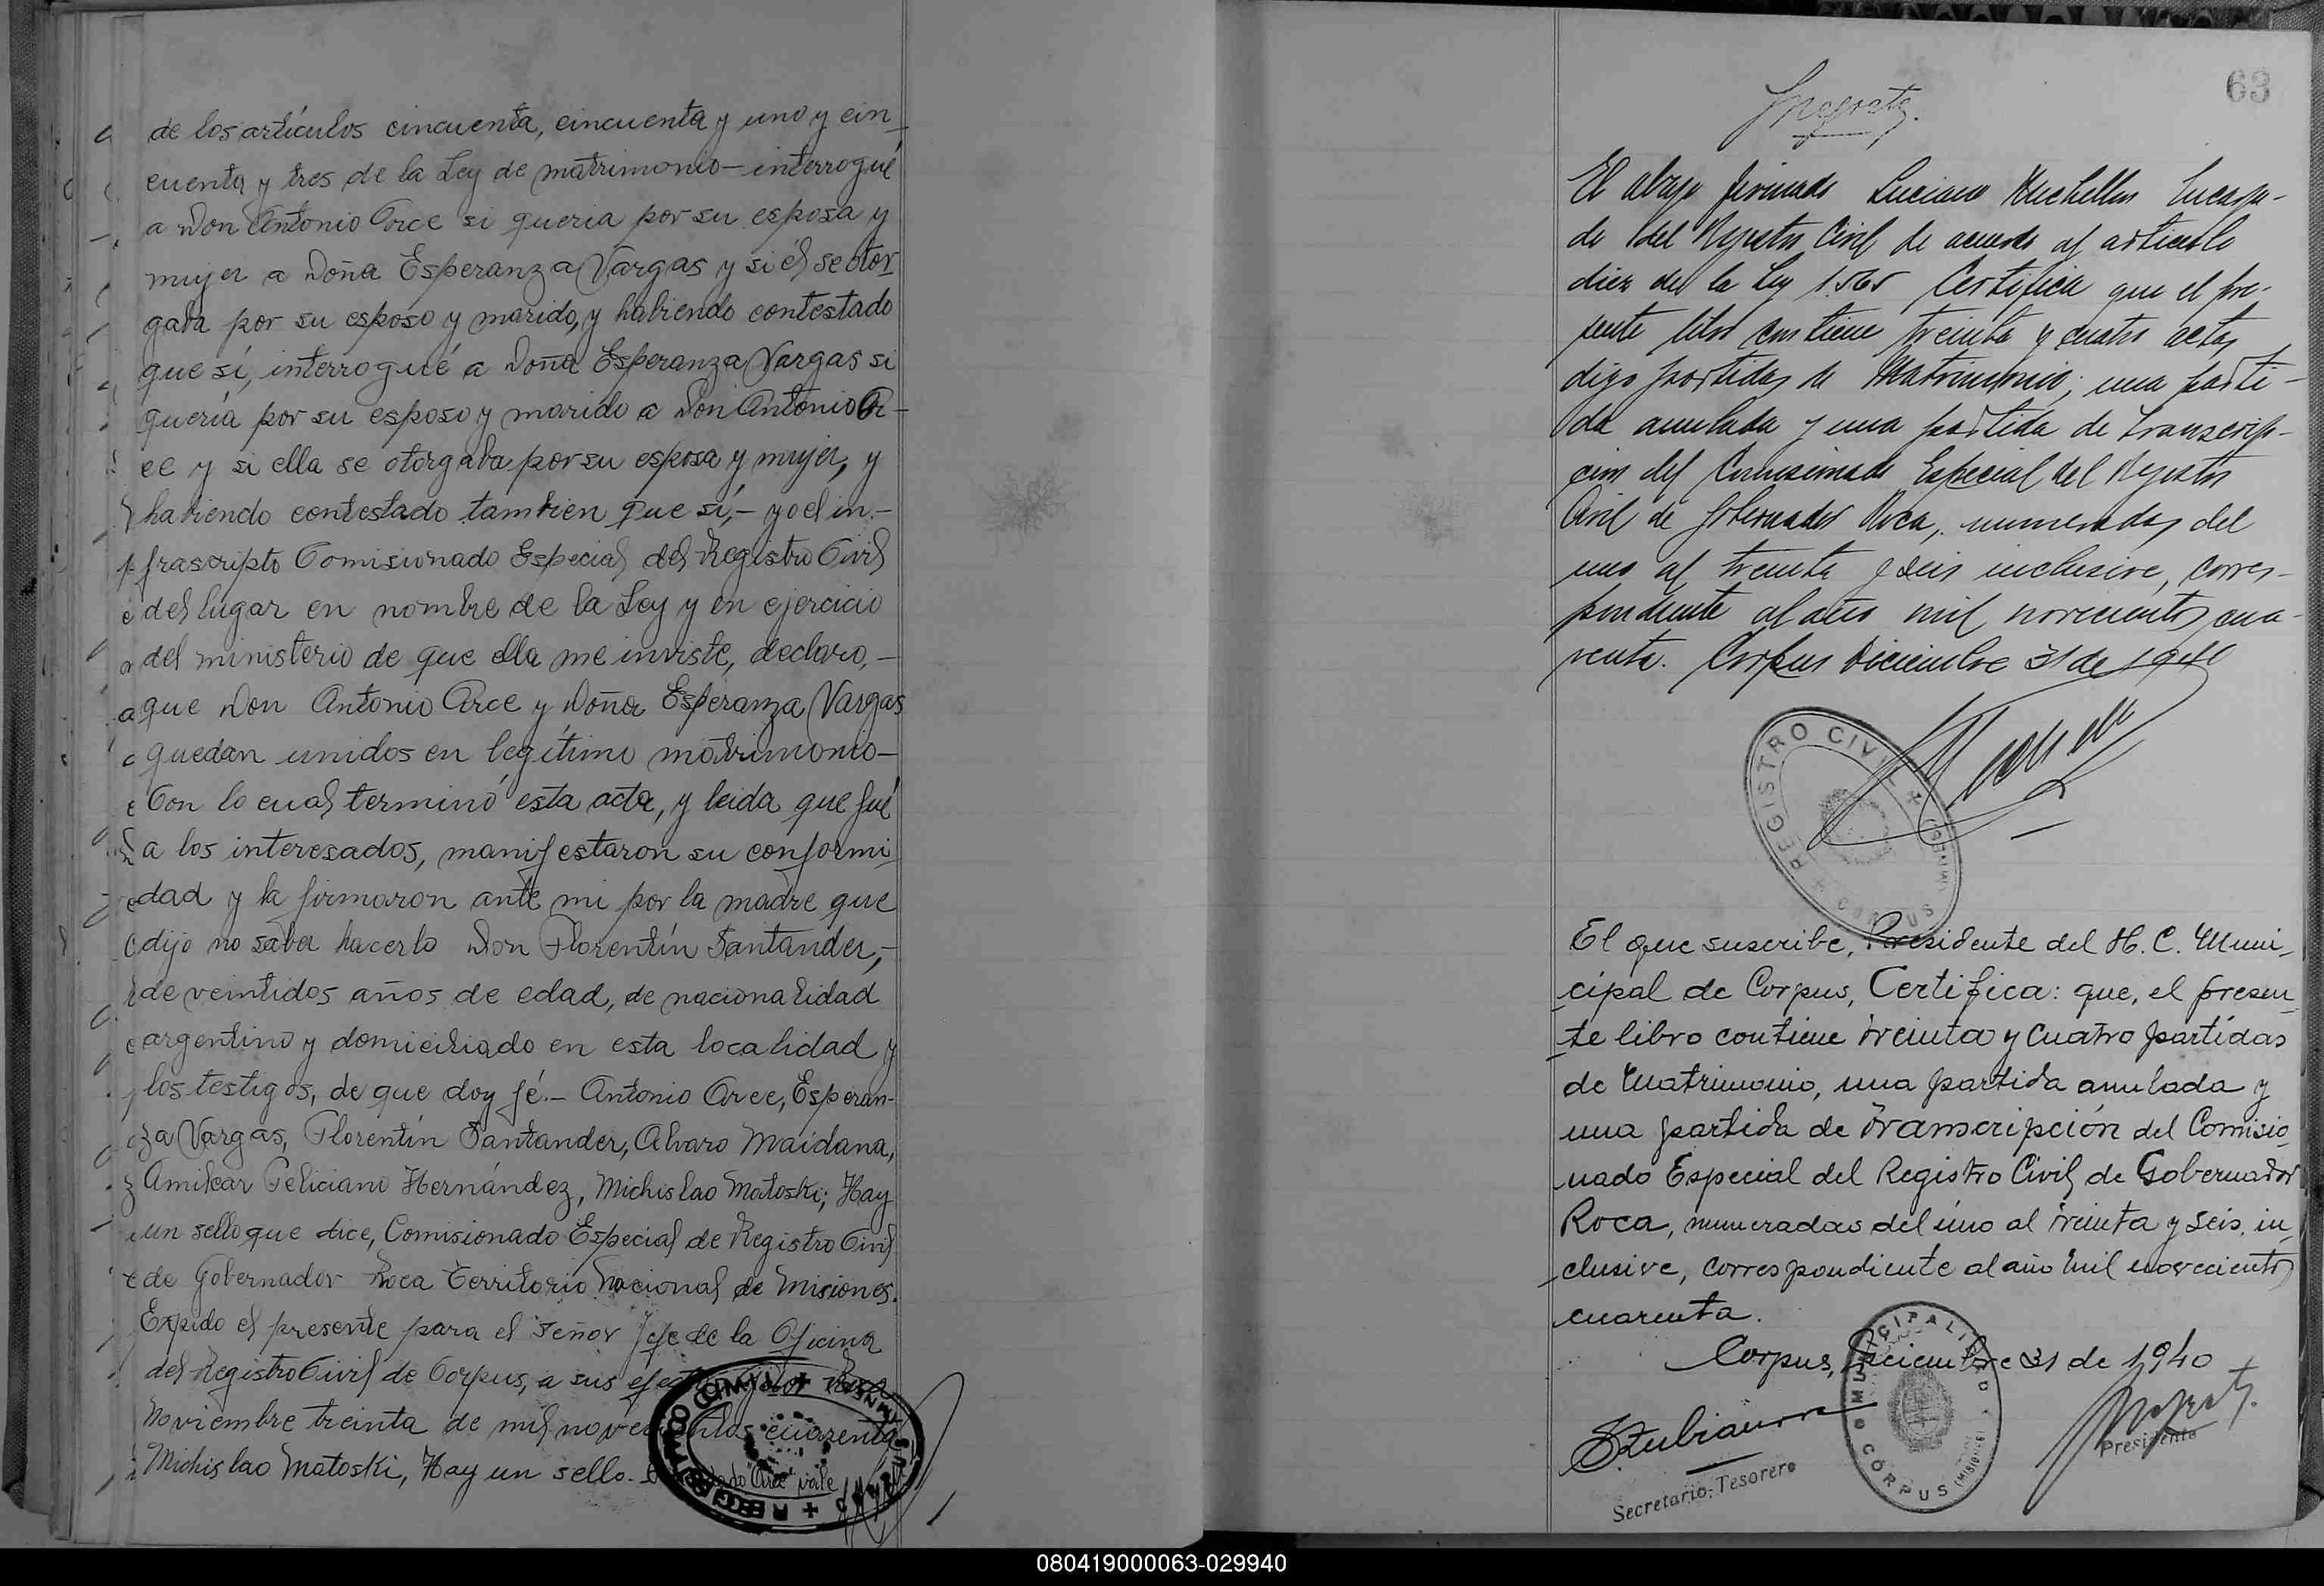 de los artículos cincuenta, cincuenta y uno y cin_
cuenta y tres de la Ley de matrimonio - interrogué
a Don Antonio Arce si queria por su esposa y
mujer a Doña Esperanza Vargas y si él se otor
gaba por su esposo y marido, y habiendo contestado
que sí, interrogué a Doña Esperanza Vargas si
quería por su esposo y marido a Don Antonio Ar-
ce y si ella se otorgaba por su esposa y mujer, y
habiendo contestado tambien que sí, - yo el in.-
frascripto Comisionado Especial del Registro Civil
del lugar en nombre de la Ley y en ejercicio
del ministerio de que ella me inviste, declaro, -
que Don Antonio Arce y Doña Esperanza Vargas
quedan unidos en legítimo matrimonio-
Con lo cual terminó esta acta, y leida que fué
a los interesados, manifestaron su conformi
dad y la firmaron ante mi por la madre que
dijo no saber hacerlo Don Florentín Santander, -
de veintidos años de edad, de nacionalidad
argentino y domiciliado en esta localidad y
los testigos, de que doy fé.- Antonio Arce, Esperan-
za Vargas, Florentín Santander, Alvaro Maidana,
Amilcar Feliciano Hernández, Michislao Matoski; Hay
un sello que dice, Comisionado Especial de Registro Civil
de Gobernador Roca Territorio Nacional de Misiones.
Expido el presente para el Señor Jefe de la Oficina
del Registro Civil de Corpus, a sus efectos Roca
Noviembre treinta de mil novecientos cuarenta
Michislao Matoski, Hay un sello. "Arce" vale
REGISTRO CIVIL
63
El abajo firmado Luciano Encarga-
do del Registro Civil de acuerdo al articulo
diez de la Ley 1.565 Certifica que el pre-
sente libro contiene treinta y cuatro actas,
digo partidas de Matrimonio; una parti-
da anulada y una partida de transcrip-
cion del Comisionado Especial del Registro
Civil de Gobernador Roca, numeradas del
uno al treinta y seis inclusive, corres-
pondiente al año mil novecientos cua-
renta. Corpus Diciembre 31 de 1940
REGISTRO CIVIL
CORPUS
(MISIONES)
El que suscribe, Presidente del H. C. Muni_
cipal de Corpus, Certifica: que, el presen_
te libro contiene treinta y cuatro partidas
de Matrimonio, una partida anulada y
una partida de transcripción del Comisio_
nado Especial del Registro Civil de Gobernador
Roca, numeradas del uno al treinta y seis in_
clusive, correspondiente al año mil novecientos
cuarenta.
Corpus, Diciembre 31 de 1,940
MUNICIPALIDAD
CORPUS (MISIONES)
Secretario-Tesorero
Presidente
080419000063-029940